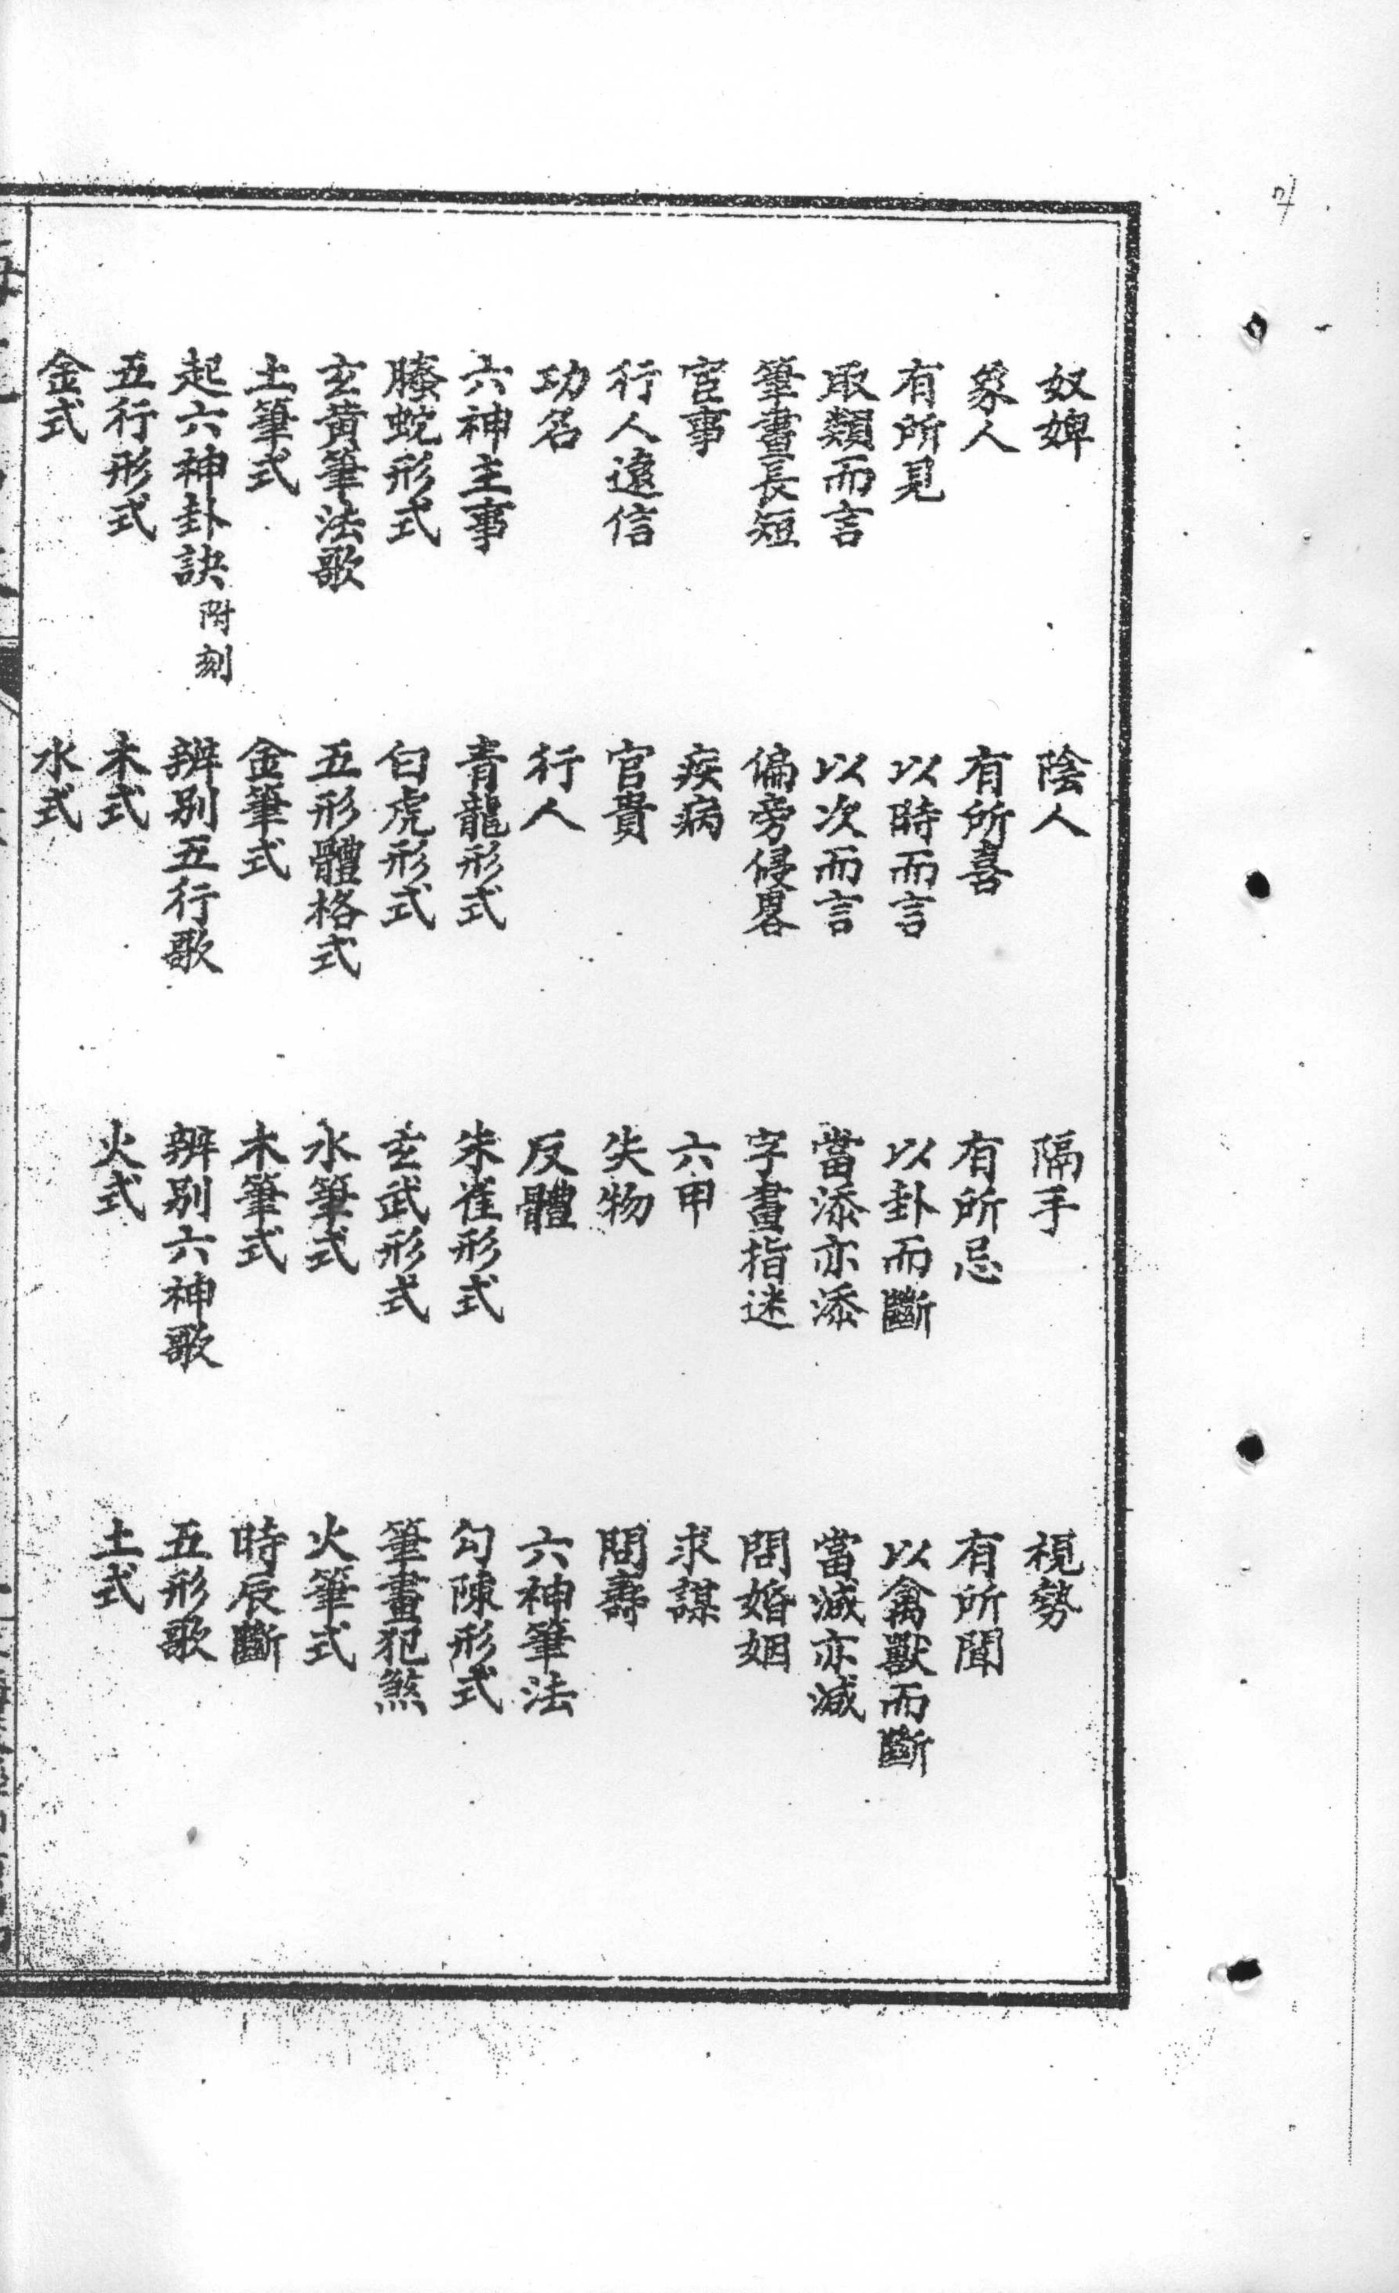 奴婢　陰人　隔手　視勢
象人　有所喜　有所忌　有所聞
有所見　以時而言　以卦而斷　以禽獸而斷
取類而言　以次而言　當添亦添　當減亦减
筆畫長短　偏旁侵畧　字畫指迷　問婚姻
官事　疾病　六甲　求謀
行人遠信　官貴　失物　問壽
功名　行人　反體　六神筆法
六神主事　青龍形式　朱雀形式　勾陳形式
螣蛇形式　白虎形式　玄武形式　筆畫犯煞
玄黃筆法歌　五形體格式　水筆式　火筆式
土筆式　金筆式　木筆式　時辰斷
起六神卦訣附刻　辨別五行歌　辨別六神歌　五形歌
五行形式　木式　火式　土式
金式　水式